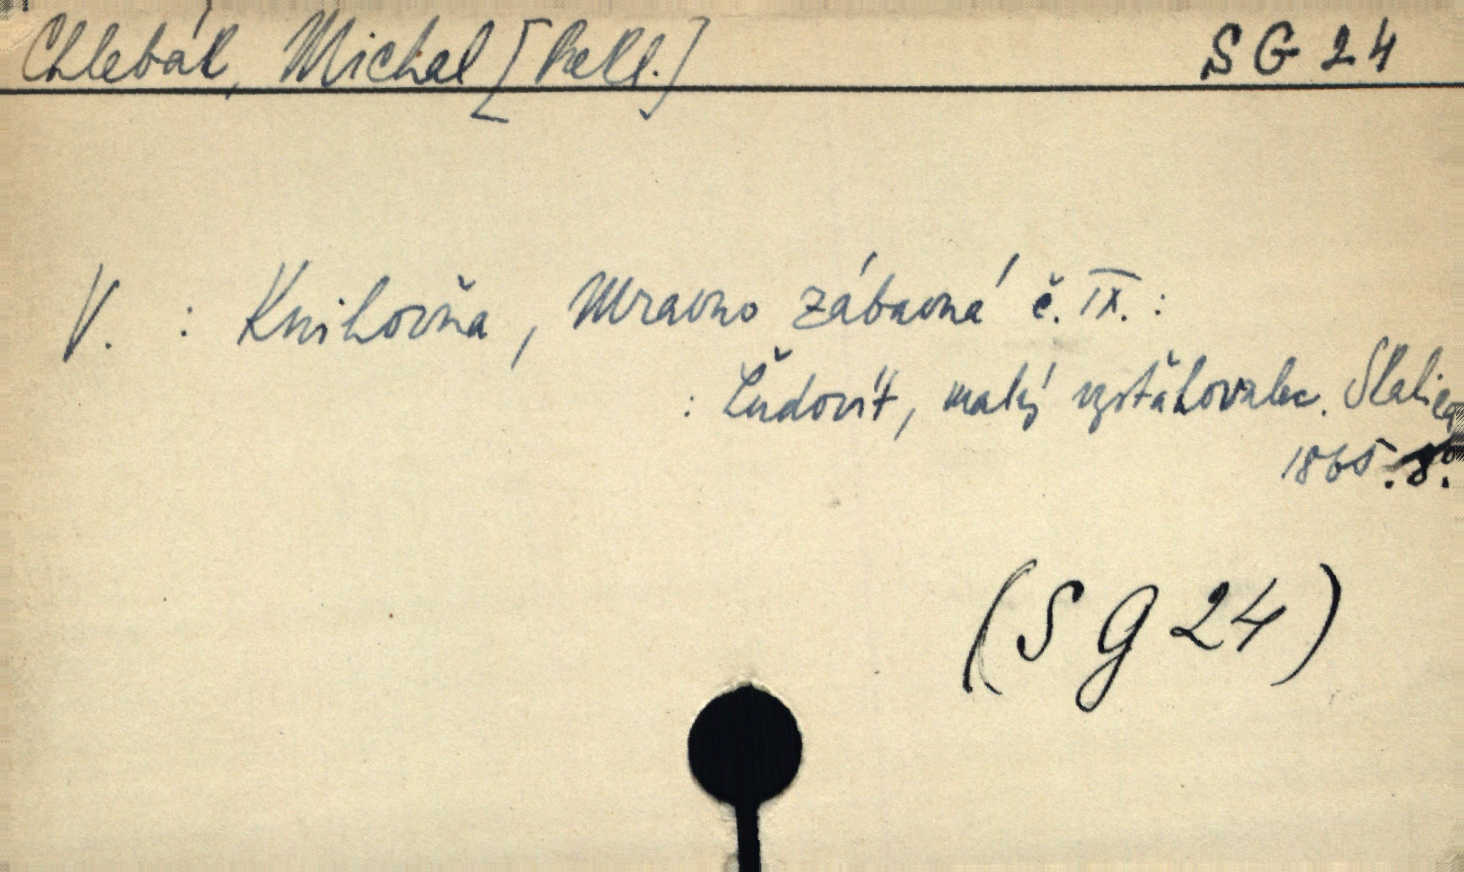 Chlebák, Michal [Prekl.] SG 24
V. : Knihovňa, Mravno zábavná č. IX. :
: Ľudovít, malý vysťahovalec. Skalica
1865. 8°.
(SG 24)